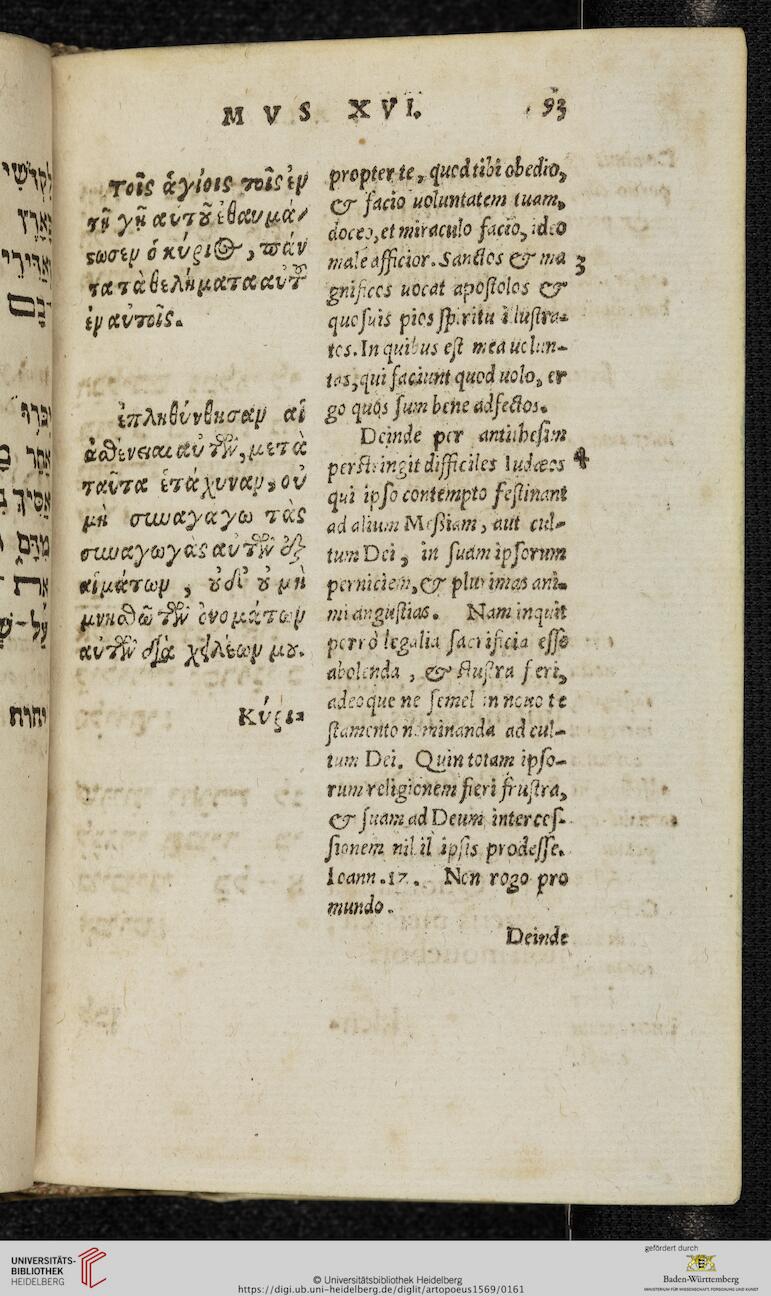 MVS XVI. 93
τοῖς ἁγίοις τοῖς ἐν
τῇ γῇ αὐτοῦ ἐθαυμά-
ςωσεν ὁ κύριος, πάν
τα τὰ θελήματα αὐτοῦ
ἐν αὐτοῖς.
ἐπληθύνθησαν αἱ
ἀσθένειαι αὐτῶν, μετὰ
ταῦτα ἐτάχυναν, οὐ
μὴ συναγαγω τὰς
συναγωγὰς αὐτῶν ἐξ
αἱμάτων, οὐδ' οὐ μὴ
μνησθῶ τῶν ὀνομάτων
αὐτῶν διὰ χειλέων μου.
Κύρι-
propter te, quod tibi obedio,
& facio uoluntatem tuam,
doceo, et miraculo facio, ideo
male afficior. Sanctos & ma 3
gnificos uocat apostolos &
quosuis pios spiritu illustra-
tos. In quibus est mea uolun-
tas, qui faciunt quod uolo, er
go quos sum bene adfectos.
Deinde per antithesim
perstringit difficiles Iudæos 4
qui ipso contempto festinant
ad alium Meßiam, aut cul-
tum Dei, in suam ipsorum
perniciem, & plurimas ani-
mi angustias. Nam inquit
porrò legalia sacrificia esse
abolenda, & frustra fieri,
adeoque ne semel in nouo te
stamento nominanda ad cul-
tum Dei. Quin totam ipso-
rum religionem fieri frustra,
& suam ad Deum interces-
sionem nihil ipsis prodesse.
Ioann. 17. Non rogo pro
mundo.
Deinde
לקדשי
אחר
יהוה
UNIVERSITÄTS-
BIBLIOTHEK
HEIDELBERG
© Universitätsbibliothek Heidelberg
https://digi.ub.uni-heidelberg.de/diglit/artopoeus1569/0161
gefördert durch
Baden-Württemberg
MINISTERIUM FÜR WISSENSCHAFT, FORSCHUNG UND KUNST